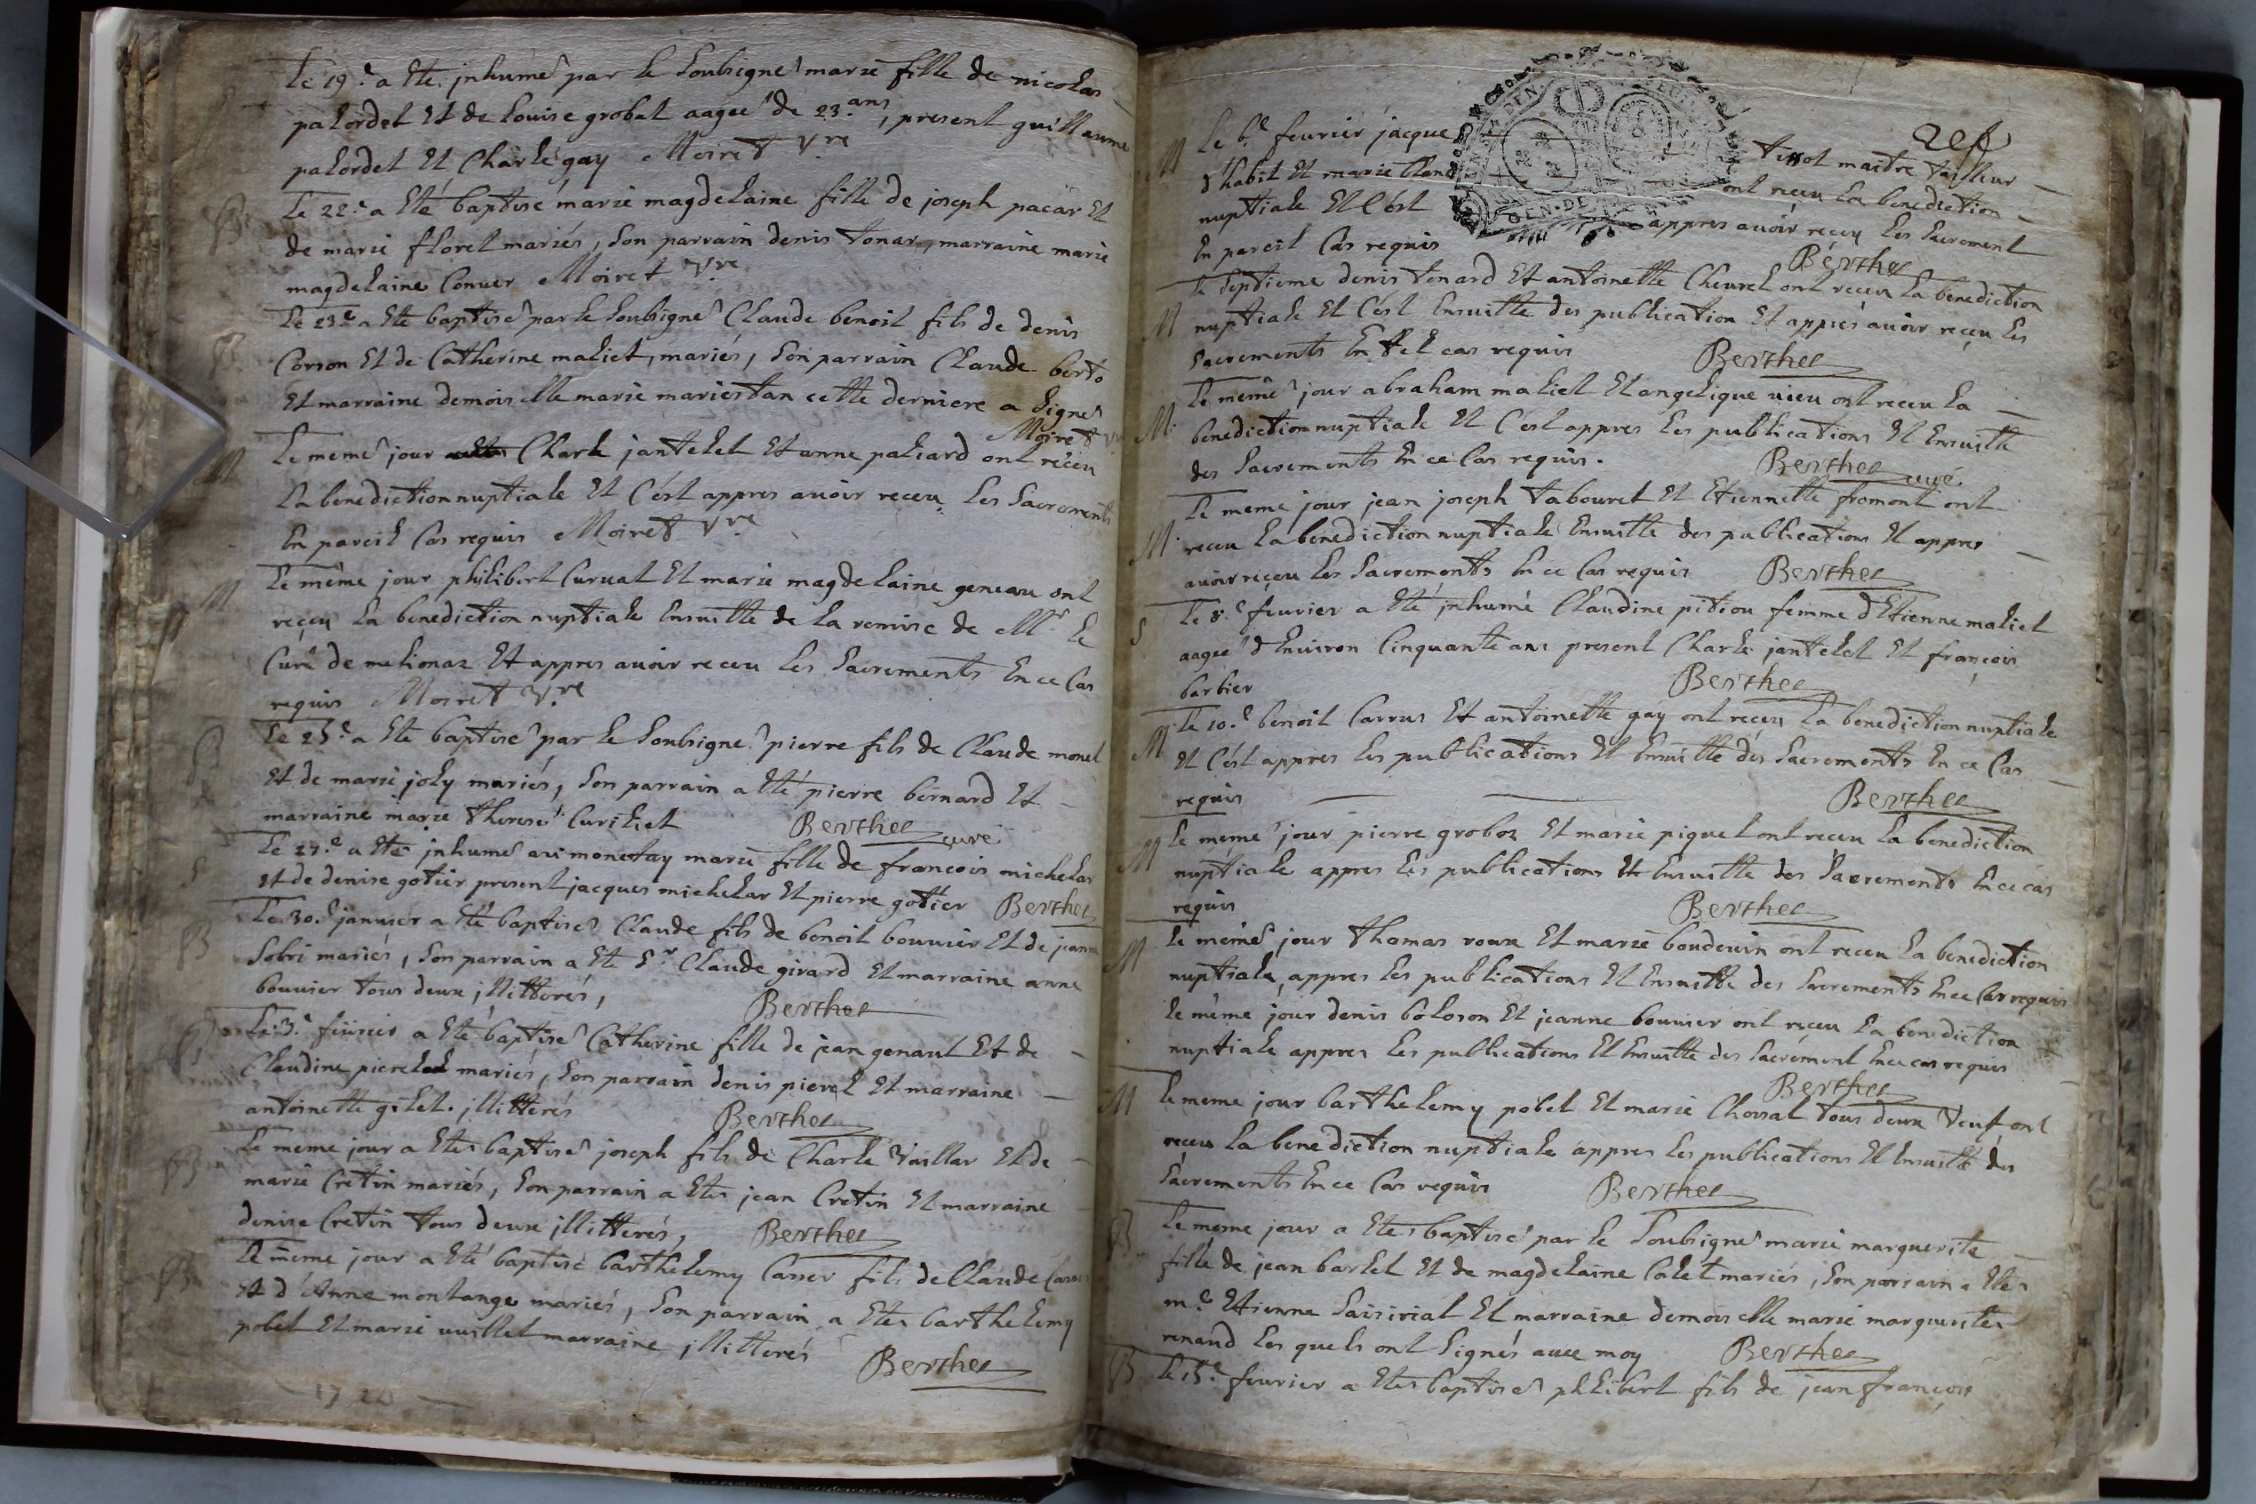 Le 19.e a Eté jnhumé par le Soubsigné marie fille de nicolas
palordet Et de Louise grobet aagée de 23. ans, present guillaume
palordet Et Charle gay Moiret Vre
Le 22.e a Eté baptisé marie magdelaine fille de joseph pacar Et
de marie floret mariés, Son parrain denis tonar, marraine marie
magdelaine Conuer Moiret Vre
Le 23.e a Eté baptisé par le Soubsigné Claude benoit fils de denis
Corson Et de Catherine maliet, mariés, Son parrain Claude berto
Et marraine demoiselle marie mariestan cette derniere a Signé
Moiret
Le meme jour Charle jantelet Et anne paliard ont receu
La benediction nuptiale Et C'ést appres auoir receu Les Sacrements
En pareil Cas requis Moiret Vre
Le même jour philibert Curuat Et marie magdelaine geneau ont
reçeu La benediction nuptiale Ensuitte de La remise de Mr. Le
Curé de melionaz Et appres auoir receu Les Sacrements En ce Cas
requis Moiret Vre
Le 25.e a Eté baptisé par le Soubsigné pierre fils de Claude monet
Et de marie joly mariés, Son parrain a Eté pierre bernard Et
marraine marie therese Curtliet Berthet curé
Le 27.e a Eté jnhumé au monetay marie fille de françois michelar
Et de denise gotier present jacques michelar Et pierre gotier Berthet
Le 30.e januier a Eté baptisé Claude fils de benoit bouuier Et de jeanne
Sobri mariés, Son parrain a Eté Sr. Claude girard Et marraine anne
bouuier tous deux jllitterés, Berthet
Le 3.e feurier a Eté baptisé Catherine fille de jean genaut Et de
Claudine pieret mariés, Son parrain denis pieret Et marraine
antoinette gilet. jllitterés Berthet
Le meme jour a Eté baptisé joseph fils de Charle Vuillar Et de
marie Cretin mariés, Son parrain a Eté jean Cretin Et marraine
denise Cretin tous deux jllitterés, Berthet
Le meme jour a Eté baptisé barthelemy Caser fils de Claude Caser
Et d'Anne montange mariés, Son parrain a Eté barthelemy
pobel Et marie uuillet marraine jllitterés Berthet
Le 6.e feurier jacque tissot maitre tailleur
d'habit Et marie ont receu La benediction
nuptiale Et C'ést appres auoir receu Les Sacrement
En pareil Cas requis Berthet
Le Septieme denis tonard Et antoinette Cheurel ont receu La benediction
nuptiale Et C'ést Ensuitte des publication Et appres auoir reçeu Les
Sacrements En tel cas requis Berthet
Le même jour abraham maliet Et angelique uieu ont receu La
benediction nuptiale Et C'ést appres Les publications Et Ensuitte
des Sacrements En ce Cas requis. Berthet curé
Le meme jour jean joseph tabouret Et Etiennette fromont ont
receu La benediction nuptiale Ensuitte des publications Et appres
auoir reçeu Les Sacrements En ce Cas requis Berthet
Le 8.e feurier a Eté jnhumé Claudine pitiou femme d'Etienne maliet
aagée d'Enuiron Cinquante ans present Charle jantelet Et françois
barbier Berthet
Le 10.e benoit Carrus Et antoinette gay ont receu La benediction nuptiale
Et C'ést appres Les publications Et Ensuitte des Sacrements En ce Cas
requis Berthet
Le meme jour pierre groboz Et marie piguet ont receu La benediction
nuptiale appres Les publications Et Ensuitte des Sacrements En ce cas
requis Berthet
Le même jour thomas roux Et marie boudeuin ont receu La benediction
nuptiale, appres Les publications Et Ensuitte des Sacrements En ce Cas requis
Le même jour denis boloson Et jeanne bouuier ont reçeu La benediction
nuptiale appres Les publications Et Ensuitte des Sacrement En ce cas requis
Berthet
Le meme jour barthelemy pobel Et marie Choval tous deux Veuf ont
receu La benediction nuptiale appres Les publications Et Ensuitte des
Sacrements En ce Cas requis Berthet
Le meme jour a Eté baptisé par le Soubsigné marie marguerite
fille de jean barlet Et de magdelaine Colet mariés, Son parrain a Eté
m.e Etienne Saisirial Et marraine demoiselle marie marguerite
renaud Les quels ont Signés auec moy Berthet
Le 15.e feurier a Eté baptisé philibert fils de jean françois